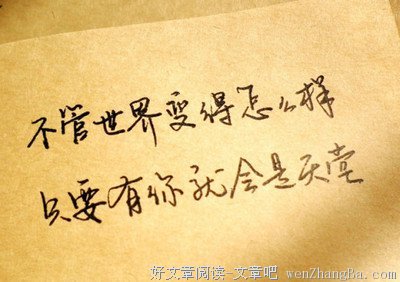 不管世界变得怎么样
只要有你就会是天堂
好文章阅读-文章吧 wenZhangBa.com